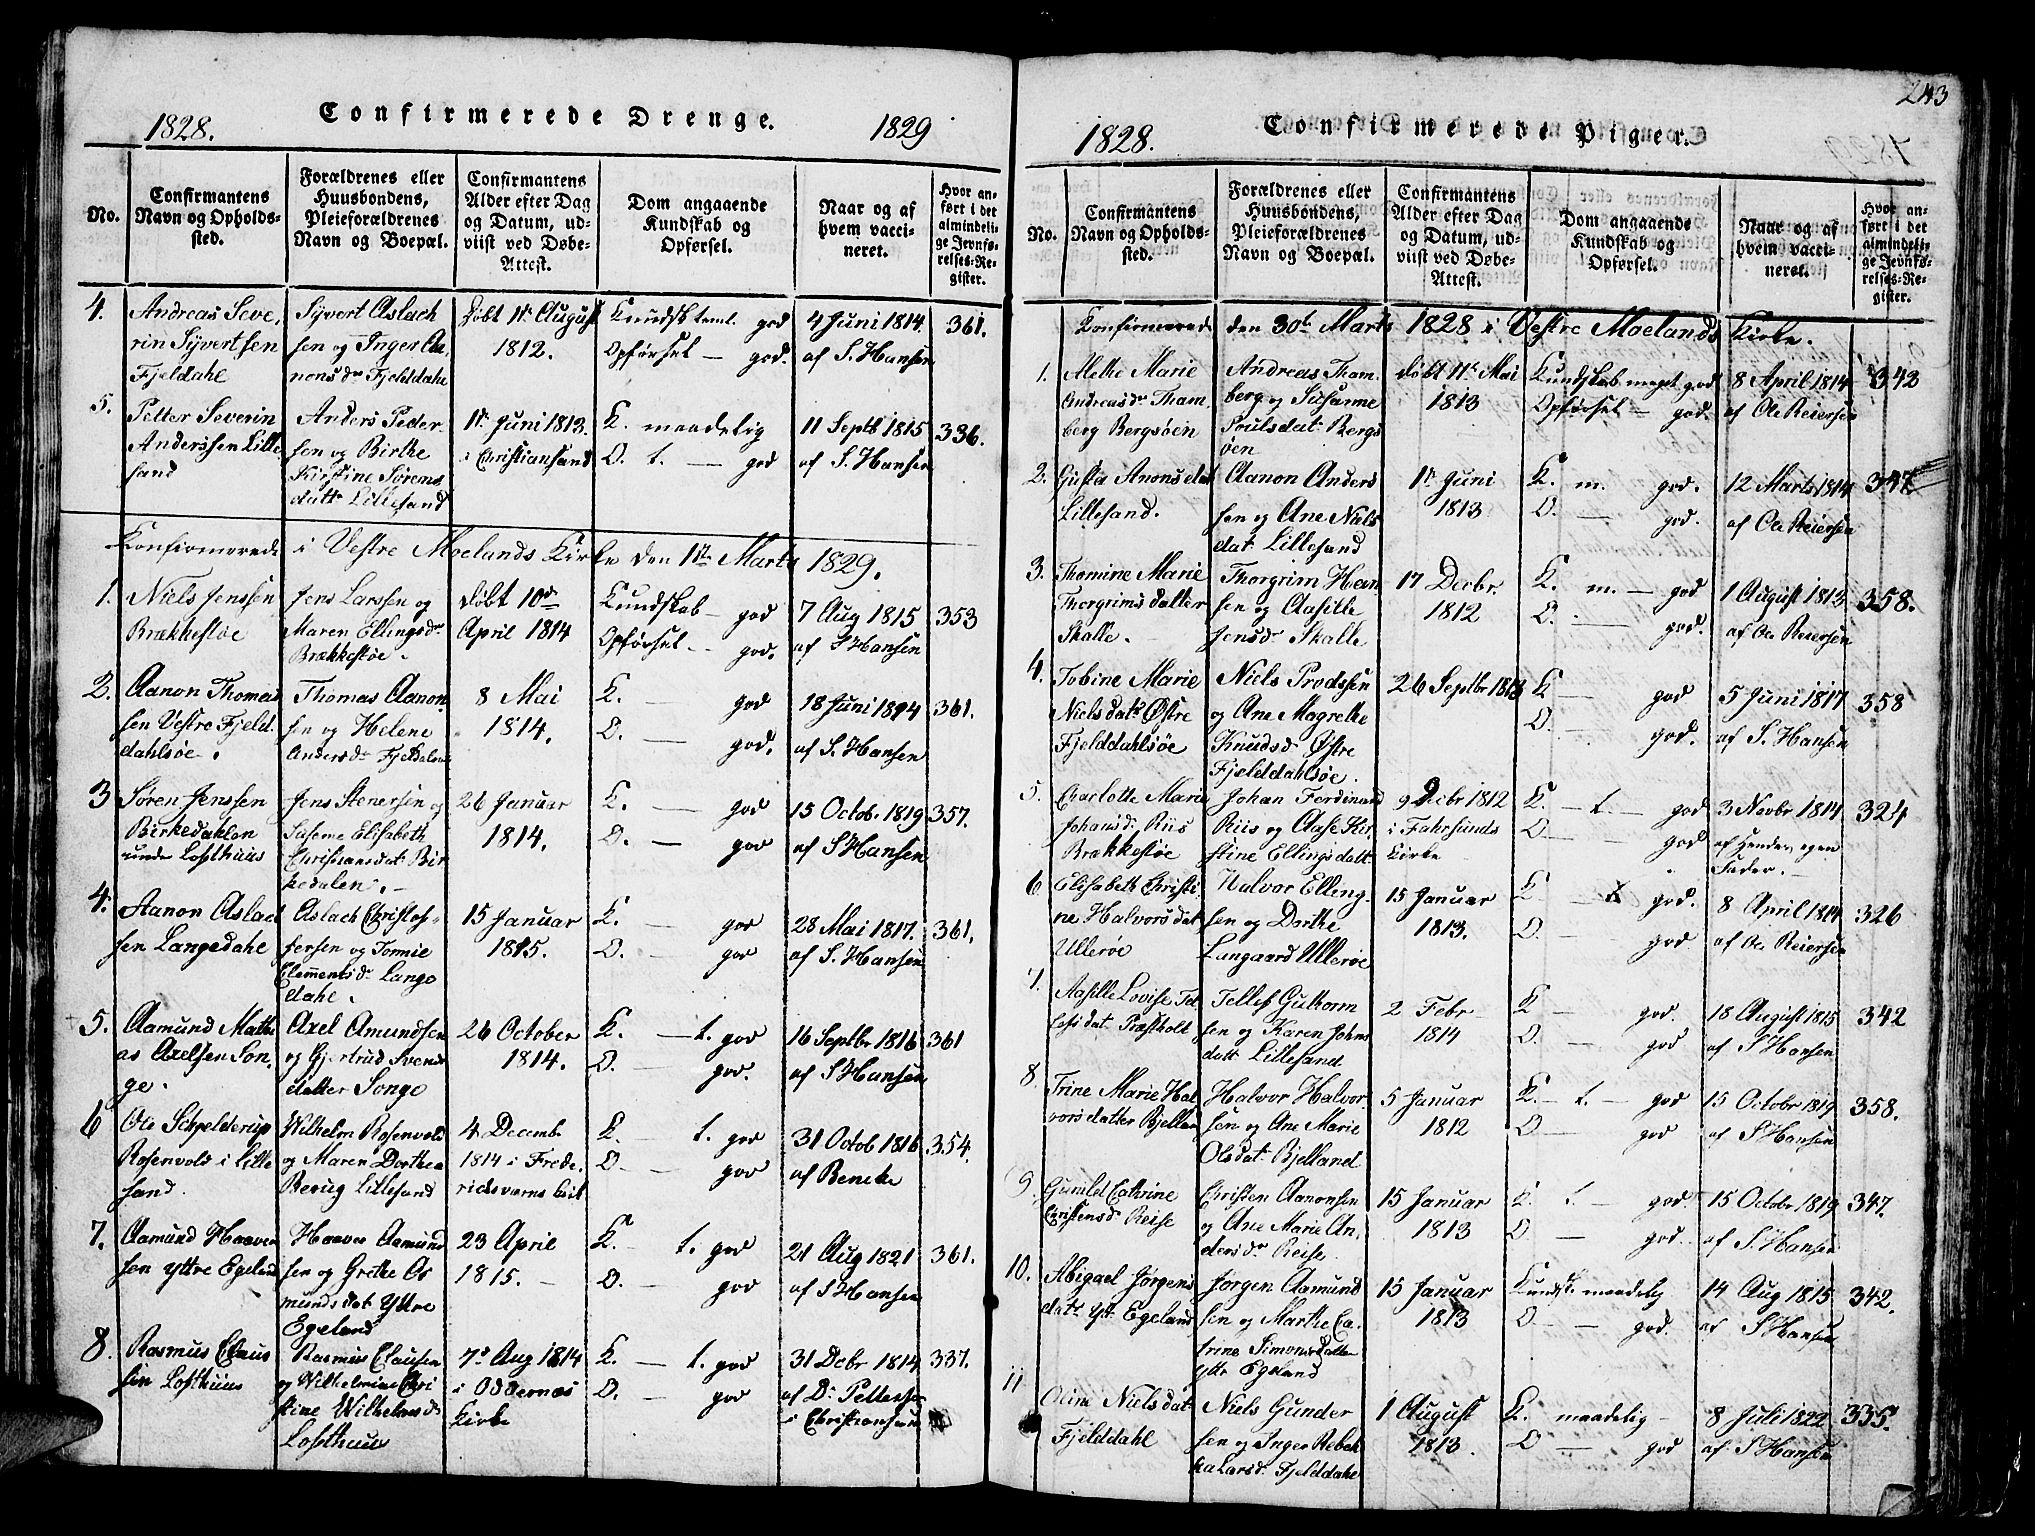 1828.
Confirmerede Drenge.
1829
No.
Confirmantens
Navn og Opholds-
sted.
Forældrenes eller
Huusbondens,
Pleieforældrenes
Navn og Boepæl.
Confirmantens
Alder efter Dag
og Datum, ud-
viist ved Døbe-
Attest.
Dom angaaende
Kundskab og
Opførsel.
Naar og af
hvem vacci-
neret.
Hvor an-
ført i det
almindeli-
ge Jevnfø-
relses-Re-
gister.
4.
Andreas Seve,
rin Syvertsen
Fjeldahl
Syvert Aslach
sen og Inger Aa,
nonsdr Fjelddahl
Døbt 11te August
1812.
Kundsk teml. god
Opførsel — god.
4 Juni 1814.
af S. Hansen
361.
5.
Petter Severin
Anderssen Lille
sand
Anders Peder
sen og Birthe
Kirstine Sørens
datt Lillesand
11te Juni 1813.
i Christiansand
K. maadelig
O. t. — god
11 Septb 1815
af S. Hansen
336.
Konfirmerede i Vestre Moelands Kirke den 1ste Marts 1829.
1.
Niels Jenssen
Brækkestøe
Jens Larssen og
Maren Ellingsdr
Brækkestøe.
Døbt 10de
April 1814
Kundskab — god
Opførsel — god.
7 Aug 1815
af S Hansen
353
2.
Aanon Thomas
sen Vestre Fjeld
dahlsøe.
Thomas Aanon
sen og Helene
Andersdr Fjeldalsøe
8 Mai
1814.
K. — god
O. — god.
18 Juni 1814
af S. Hansen
361.
3
Søren Jenssen
Birkedahlen
under Lofthuus
Jens Stenersen og
Elisabeth
Christiansdat Bir
kedalen.
26 Januar
1814.
K. — god
O. — god
15 Octob. 1819
af S Hansen
357.
4.
Aanon Aslac
sen Langedahl
Aslach Christof-
fersen og Tormie
Clemmentsdr Lange
dahl.
15 Januar
1815.
K. — god
O. — god
28 Mai 1817.
af S. Hansen
361.
5.
Aamund Mathi
as Axelsen Son,
ge.
Axel Amundsen
og Gjertrud Svends
datter Songe
26 October
1814.
K. — t. god
O. — god.
16 Septbr 1816
af S Hansen
361
6
Ole Schjelderup
Rosenvold i Lille
sand.
Wilhelm Rosenvold
og Maren Dorthea
Lillesand
4 Decemb
1814 i Frede,
ricsværns
K. t. god
O. — god
31 Octob 1816
af Bencke
354.
7.
Aamund Haaven
sen yttre Egeland
Haaver Aamund
sen og Grethe Os
mundsdat Yttre
Egeland
23 April
1815.
K. — t. god
O. — god
21 Aug 1821
af S Hansen
361.
8.
Rasmus Claus
sen Lofthuus
Rasmus Clausen
og Wilhelmine Chri
stine Wilhelmsdr
Lofthuus
7de Aug 1814
i Oddernæs
Kirke
K. — t. god
O. — god
31 Debr 1814
af Dr Pettersen
i Christiansand
337.
243
1828.
Confirmerede Piger.
No.
Confirmantens
Navn og Opholds-
sted.
Forældrenes eller
Huusbondens,
Pleieforældrenes
Navn og Boepæl.
Confirmantens
Alder efter Dag
og Datum, ud-
viist ved Døbe-
Attest.
Dom angaaende
Kundskab og
Opførsel.
Naar og af
hvem vacci-
neret.
Hvor an-
ført i det
almindeli-
ge Jevnfø-
relses-Re-
gister.
Konfirmerede den 30te Marts 1828 i Vestre Moelands Kirke.
1.
Alethe Marie
Andreasdr Tham,
berg Bergsøen
Andreas Tham
berg og Susanne
Poulsdat Bergs
øen
Døbt 11te Mai
1813
Kundskab meget god
Opførsel — god.
8 April 1814
af Ole Reiersen
342
2.
Gusta Anonsdat
Lillesand.
Aanon Anders
sen og Ane Niels
dat Lillesand
1te Juni
1813
K. m. god.
O. — god.
12 Marts 1814
af Ole Reiersen
347
3.
Thomine Marie
Thorgrimsdatter
Skalle.
Thorgrim Han
sen og Aasille
Jensdr Skalle
17 Decbr
1812
K. m. — god
O. — god.
1 August 1813
af Ole Reiersen
358.
4.
Tobine Marie
Nielsdatr Østre
Fjelddahlsøe
Niels Brodssen
og Ane Magrethe
Knudsdr Østre
Fjelddahlsøe.
26 Septbr 1813
K — god
O. — god.
5 Juni 1817
af S. Hansen
358
5.
Charlotte Marie
Johansdr Riis
Brækkestøe
Johan Ferdinand
Riis og Aase Kir
stine Ellingsdatt
9 Decbr 1812
i Fahrsunds
Kirke
K. — t. — god
O — god
3 Novbr 1814
af Hendes egen
Fader.
324
6
Elisabeth Christi
ne Halvorsdat
Ullerøe
Halvor Elling
sen og Dorthe
Langaard Ullerøe
15 Januar
1813.
K — god.
O. — god
8 April 1814
af Ole Reiersen
326
7.
Aasille Lovise Tel
lefsdat Præstholt
Tellef Guthorm
sen og Karen Johns
datt Lillesand
2 Febr
1814
K — god.
O — god
18 August 1815
af S Hansen
342
8.
Trine Marie Hal
vorsdatter Bjellan
Halvor Halvor
sen og Ane Marie
Olsdat Bjelland
5 Januar
1812
K. — t. — god
O — god
15 Octobr 1819
af S Hansen
358.
9.
Gunild Cathrine
Christensdr Reise
Christen Aanonsen
og Ane Marie An,
dersdr Reise
15 Januar
1813
K. t. — god.
O — god.
15 Octobr 1819
af S Hansen
347.
10.
Abigael Jørgens
datr ytt. Egeland
Jørgen Aamund
sen og Marthe Ca-
trine Simonsdatter
yttr Egeland
15 Januar
1813
Kundsk. maadelig
O — god.
14 Aug 1815
af S Hansen
342.
11
Oline Nielsdat
Fjelddahl
Niels Gunder
sen og Inger Rebek
ka Larsdr Fjelddahl
1 August
1813.
K. maadelig —
O — god
8 Juli 1822
af S Hansen
335.